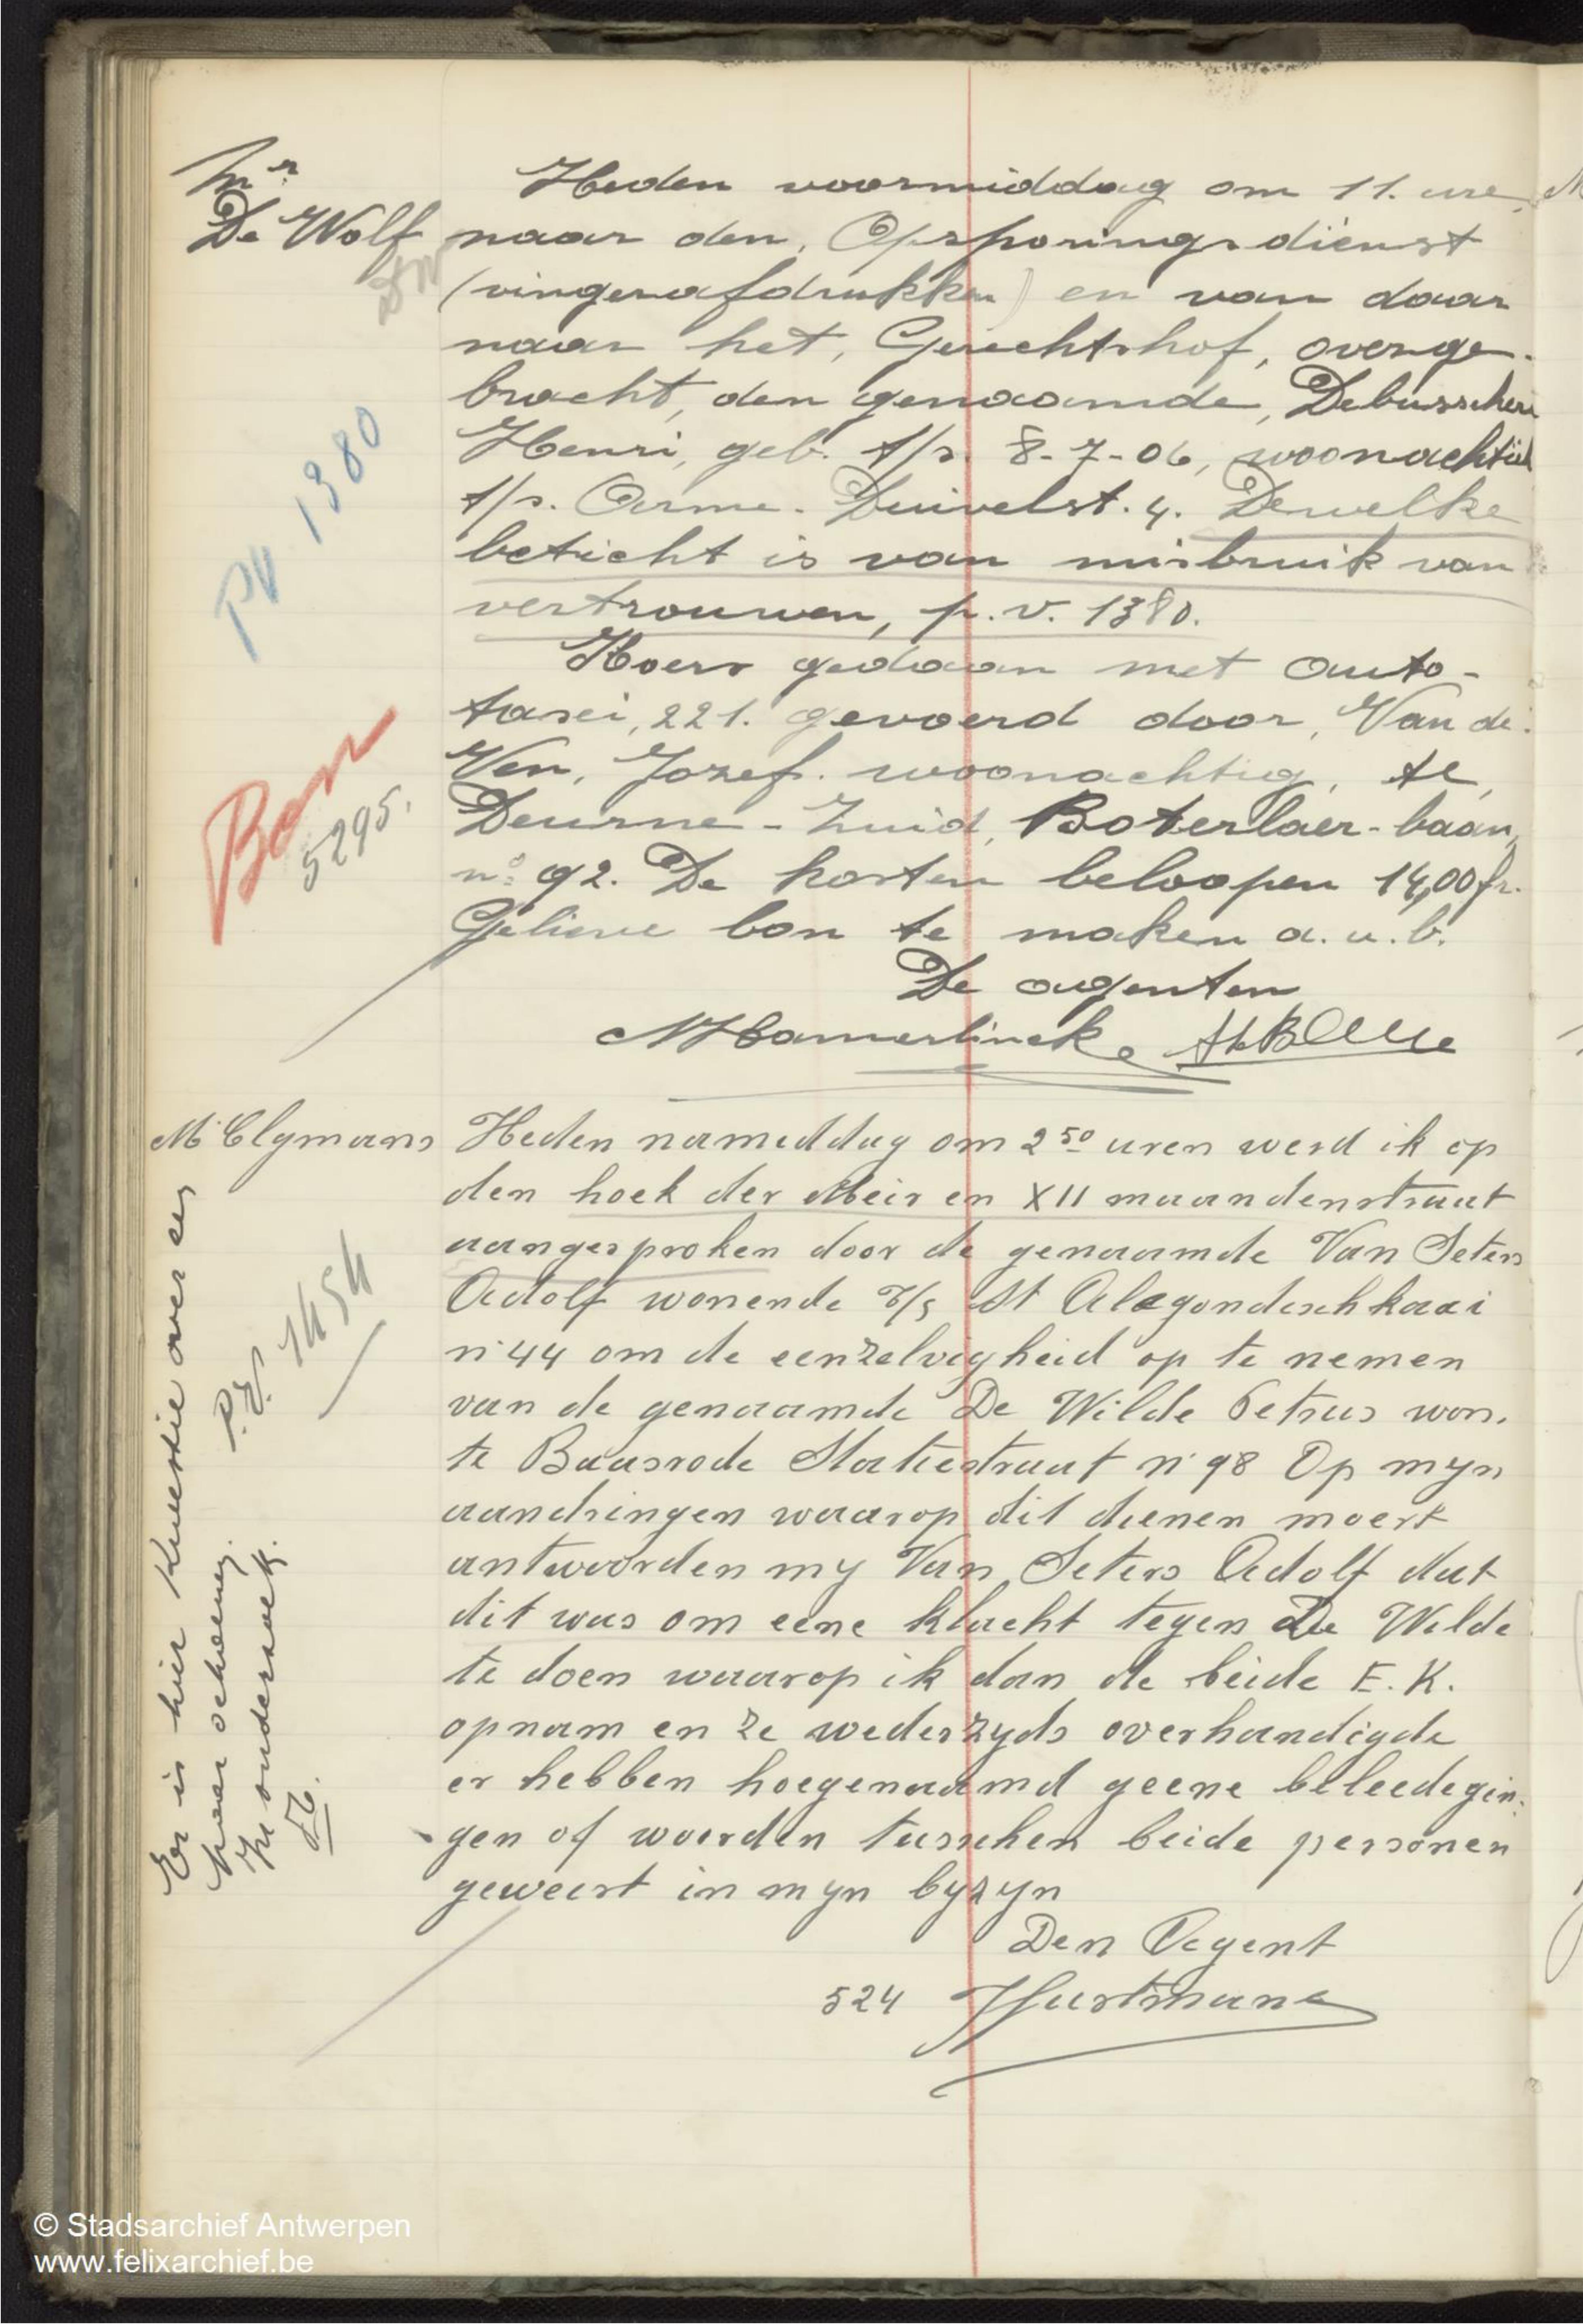 Mr.
De Wolf
Heden voormiddag om 11. ure,
naar den, Opsporingsdienst
(vingerafdrukken) en van daar
naar het, Gerechtshof, overge-
bracht, den genaamde, Debusschere
Henri, geb. t/s. 8-7-06, woonachtich
t/s. Arme-Duivelst. 4. Dewelke
beticht is van misbruik van
vertrouwen, p.v. 1380.
PV 1380
Koers gedaan met auto-
taxei, 221. gevoerd door, Van de
Ven, Jozef. woonachtig, te,
Deurne-Zuid, Boterlaer-baan,
no: 92. De kosten beloopen 14,00 fr.
Gelieve bon te maken a.u.b.
Bon
5295.
De agenten
M Hamerlinck
M Clymans
Heden nameddag om 2 50 uren werd ik op
den hoek der Meir en XII maandenstraat
aangesproken door de genaamde Van Seters
Adolf wonende t/s St Alegondeschkaai
n' 44 om de eenzelvigheid op te nemen
van de genaamde De Wilde Petrus won.
te Baasrode Statiestraat n' 98 Op myn
aandringen waarop dit dienen moest
antwoorden my Van Seters Adolf dat
dit was om eene klacht tegen De Wilde
te doen waarop ik dan de beide E.K.
opnam en ze wederzyds overhandigde
er hebben hoegenaamd geene beleedegin-
gen of woorden tusschen beide personen
geweest in myn byzyn
Den Agent
524 Hartmans
P.V. 1454
Er is hier kwestie over een
Te onderzoek.
© Stadsarchief Antwerpen
www.felixarchief.be